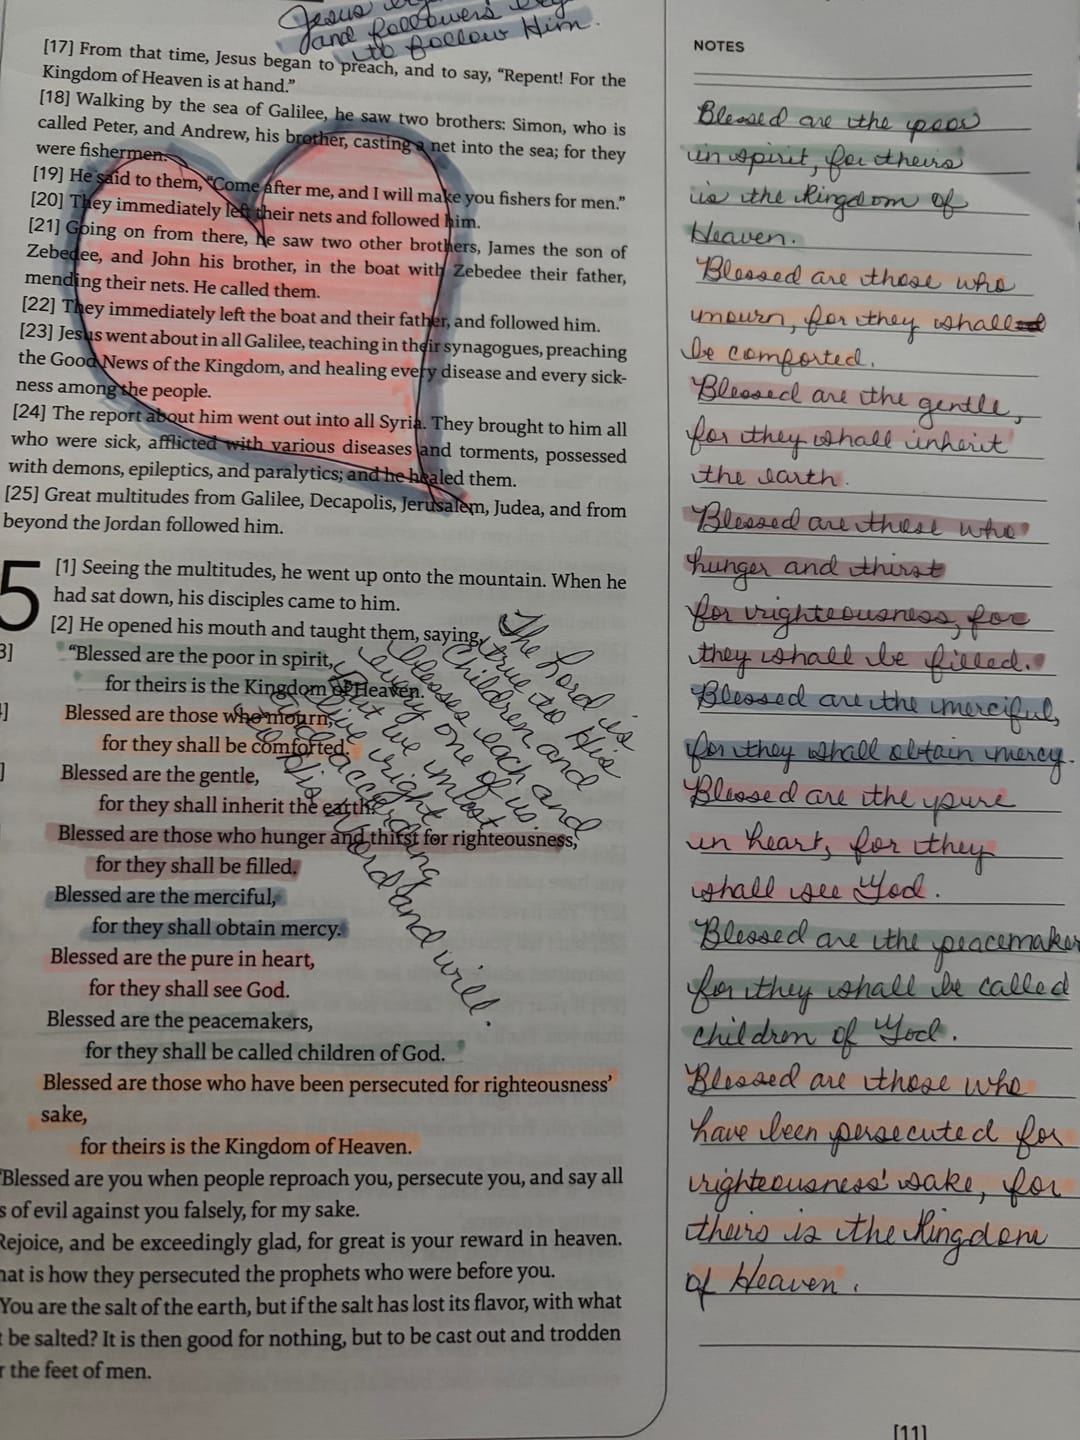 Jesus
and followers
to follow Him.
[17] From that time, Jesus began to preach, and to say, “Repent! For the
Kingdom of Heaven is at hand.”
[18] Walking by the sea of Galilee, he saw two brothers: Simon, who is
called Peter, and Andrew, his brother, casting a net into the sea; for they
were fishermen.
[19] He said to them, “Come after me, and I will make you fishers for men.”
[20] They immediately left their nets and followed him.
[21] Going on from there, he saw two other brothers, James the son of
Zebedee, and John his brother, in the boat with Zebedee their father,
mending their nets. He called them.
[22] They immediately left the boat and their father, and followed him.
[23] Jesus went about in all Galilee, teaching in their synagogues, preaching
the Good News of the Kingdom, and healing every disease and every sick-
ness among the people.
[24] The report about him went out into all Syria. They brought to him all
who were sick, afflicted with various diseases and torments, possessed
with demons, epileptics, and paralytics; and he healed them.
[25] Great multitudes from Galilee, Decapolis, Jerusalem, Judea, and from
beyond the Jordan followed him.
5
[1] Seeing the multitudes, he went up onto the mountain. When he
had sat down, his disciples came to him.
[2] He opened his mouth and taught them, saying,
3] “Blessed are the poor in spirit,
for theirs is the Kingdom of Heaven.
] Blessed are those who mourn,
for they shall be comforted.
] Blessed are the gentle,
for they shall inherit the earth.
Blessed are those who hunger and thirst for righteousness,
for they shall be filled.
Blessed are the merciful,
for they shall obtain mercy.
Blessed are the pure in heart,
for they shall see God.
Blessed are the peacemakers,
for they shall be called children of God.
Blessed are those who have been persecuted for righteousness’
sake,
for theirs is the Kingdom of Heaven.
“Blessed are you when people reproach you, persecute you, and say all
s of evil against you falsely, for my sake.
Rejoice, and be exceedingly glad, for great is your reward in heaven.
hat is how they persecuted the prophets who were before you.
You are the salt of the earth, but if the salt has lost its flavor, with what
t be salted? It is then good for nothing, but to be cast out and trodden
r the feet of men.
The Lord is
true to His
children and
blesses each and
every one of us.
But we must
live right
and according
to His Word and will.
NOTES
Blessed are the poor
in spirit, for theirs
is the Kingdom of
Heaven.
Blessed are those who
mourn, for they shall
be comforted.
Blessed are the gentle,
for they shall inherit
the earth.
Blessed are those who
hunger and thirst
for righteousness, for
they shall be filled.
Blessed are the merciful,
for they shall obtain mercy.
Blessed are the pure
in heart, for they
shall see God.
Blessed are the peacemaker
for they shall be called
children of God.
Blessed are those who
have been persecuted for
righteousness' sake, for
theirs is the Kingdom
of Heaven.
[11]